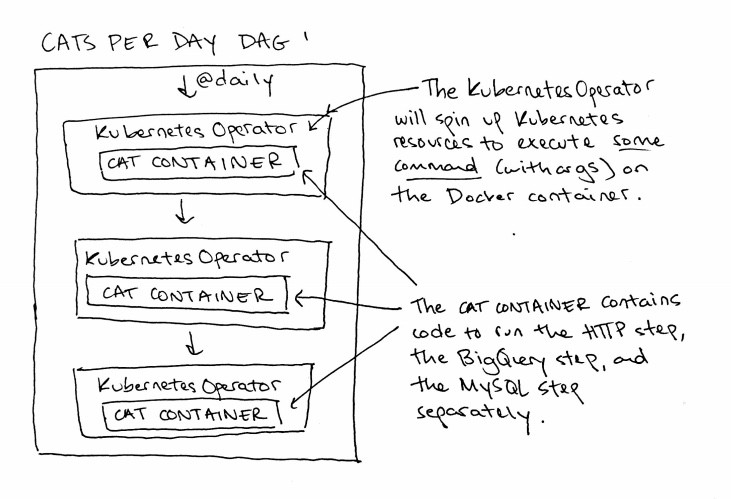 CATS PER DAY DAG
@daily
Kubernetes Operator
CAT CONTAINER
Kubernetes Operator
CAT CONTAINER
Kubernetes Operator
CAT CONTAINER
The Kubernetes Operator
will spin up Kubernetes
resources to execute some
command (with args) on
the Docker container.
The CAT CONTAINER contains
code to run the HTTP step,
the BigQuery step, and
the MySQL step
separately.